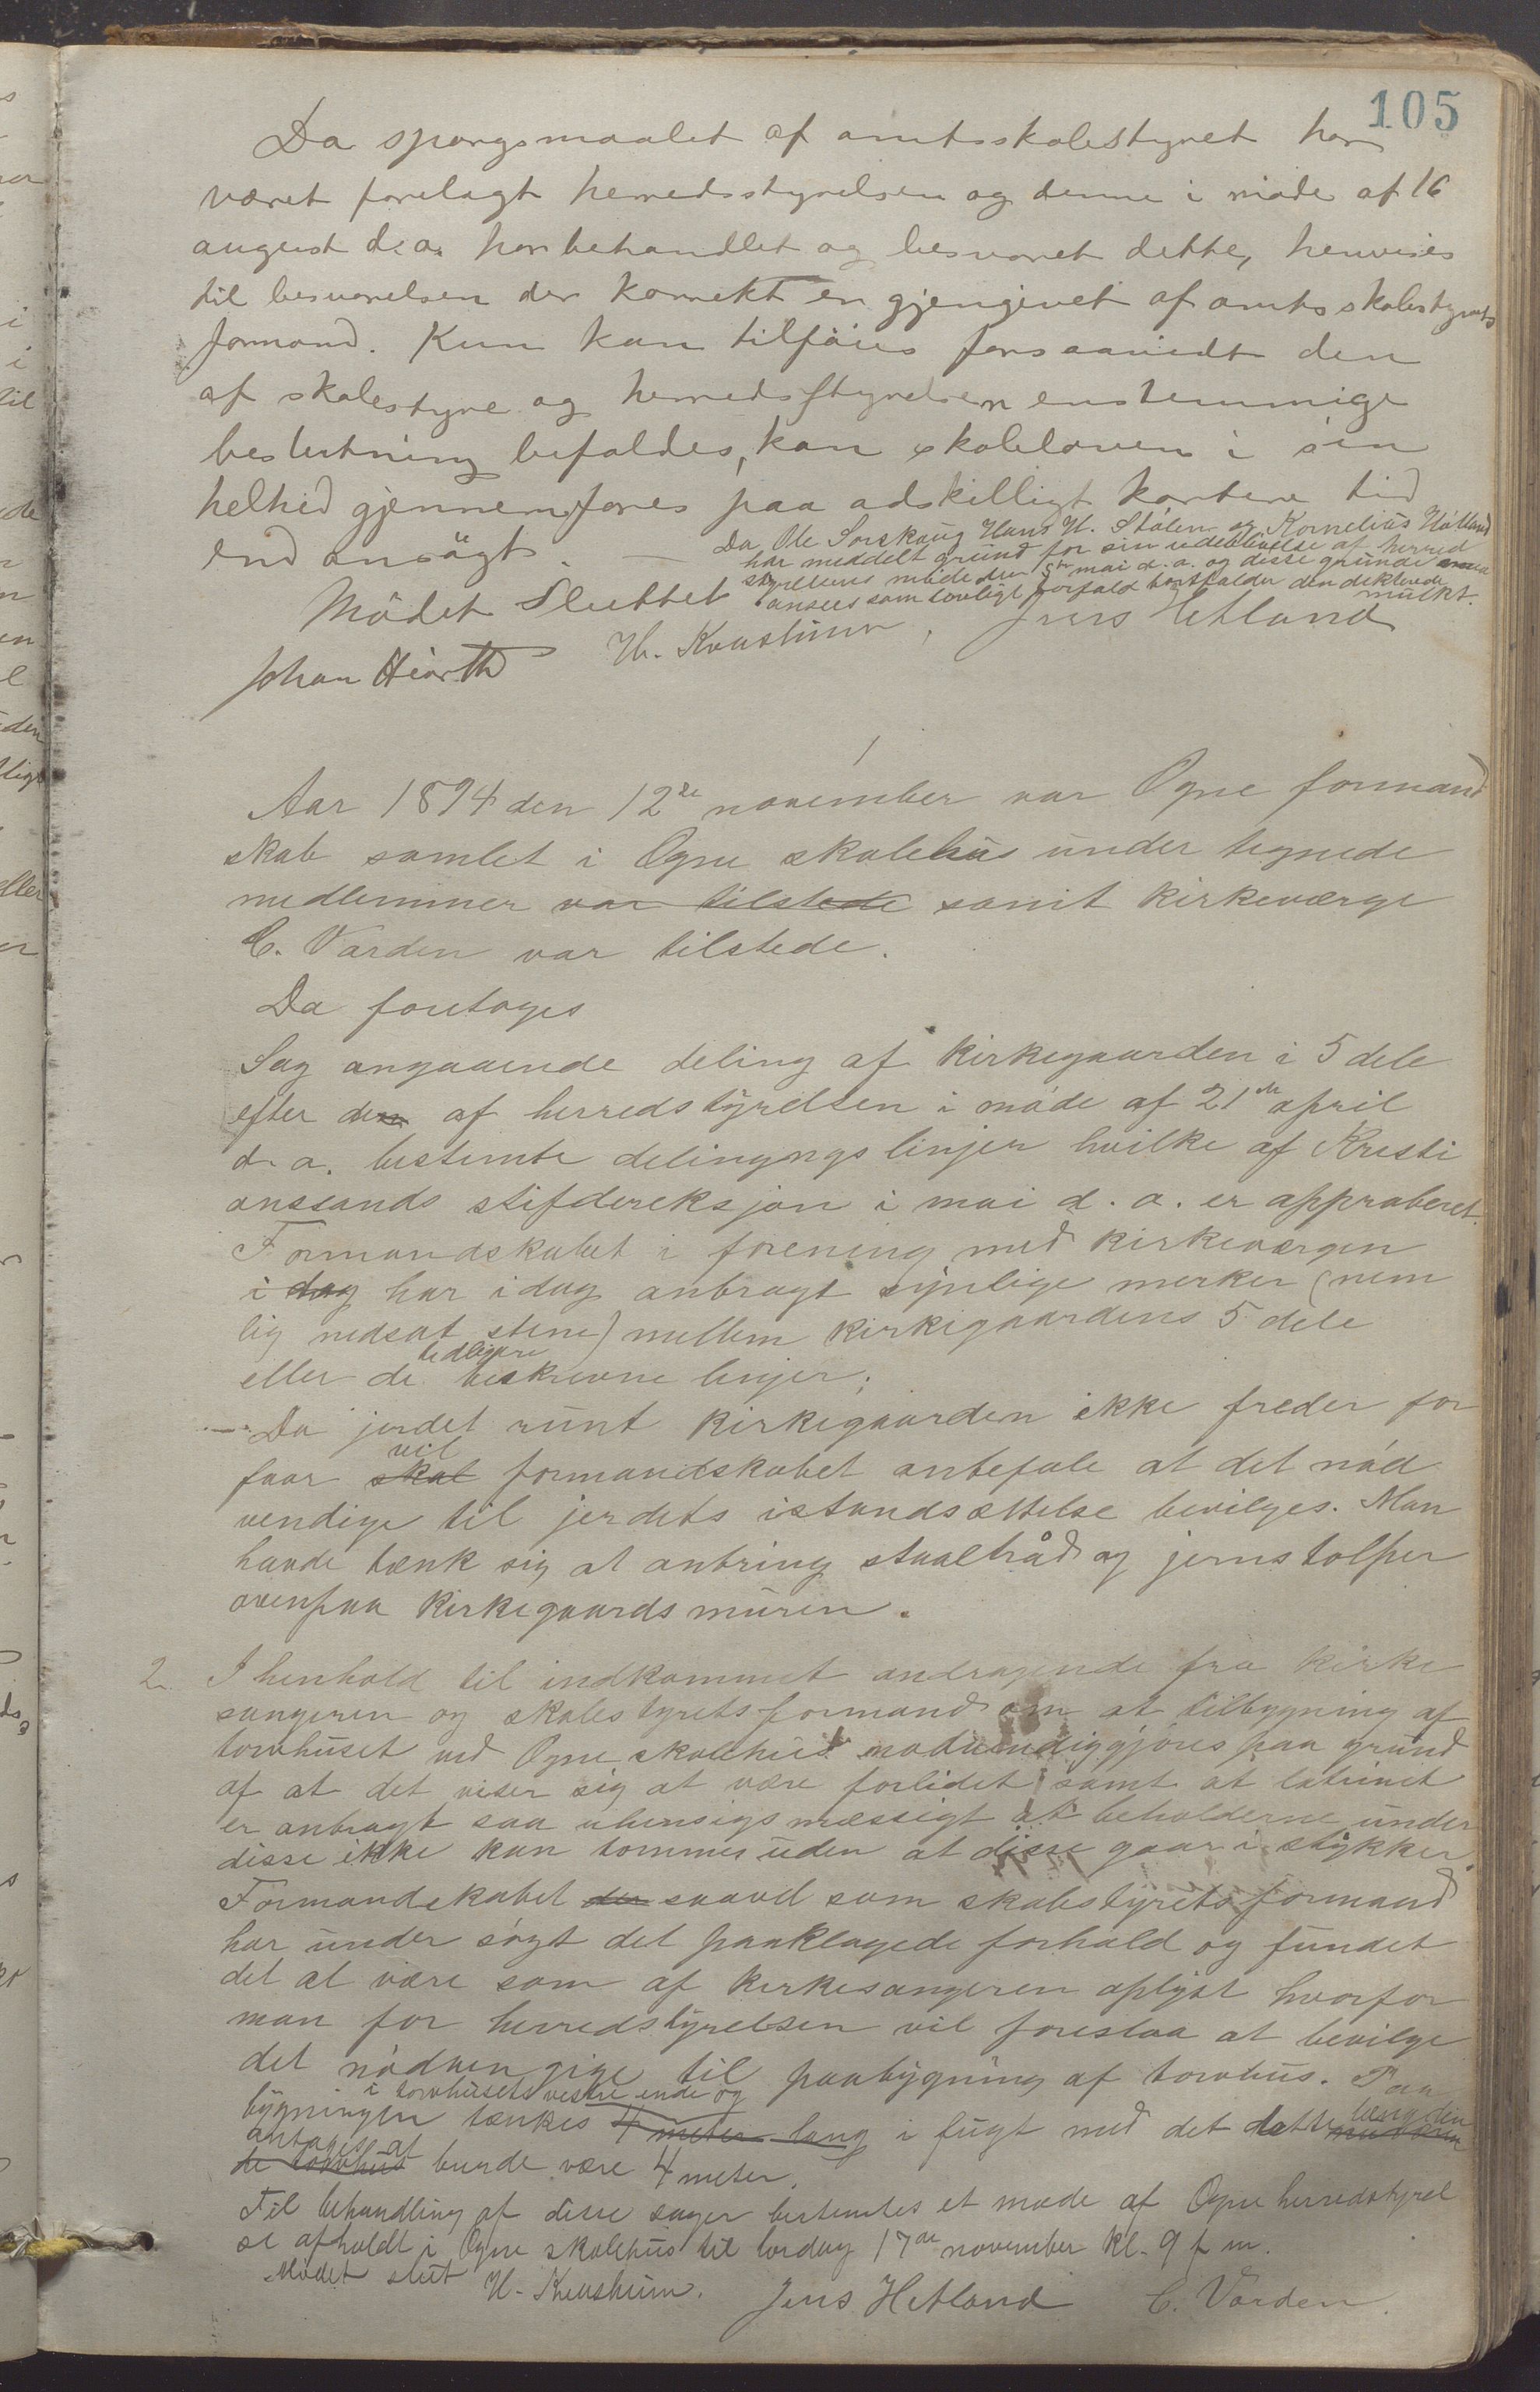 105
Da spørgsmaalet af amtsskolestyret har
været forelagt herredsstyrelsen og denne i møde af 16
august d. a. har behandlet og besvaret dette, henvises
til besvarelsen der korrekt er gjengivet af amtsskolestyrets
formand. Kun kan tilføies forsaavidt den
af skolestyre og herredsstyrelsen enstemmige
beslutning befaldes, kan skoleloven i sin
helhed gjennemføres paa adskilligt kortere tid
end ansøgt. —
Da Ole Sorskoug Hans H. Stölen og Kornelius Hätland
har meddelt grund for sin udeblivelse af herred
styrelsens møide den 5te mai d. a. og disse grunde
ansees som lovligt forfald bortfalder den dekterede
mulkt.
Mödet Sluttet
Johan Hiorth H. Kvashiem, Jens Hetland
1
Aar 1894 den 12te november var Ogne formand
skab samlet i Ogne skolehus under tegnede
medlemmer var tilstede samt kirkeværge
C. Varden var tilstede.
Da foretoges
Sag angaaende deling af kirkegaarden i 5 dele
efter den af herredstyrelsen i møde af 21de april
d. a. bestemte delingngs linjer hvilke af Kristi
anssands stifdereksjon i mai d. a. er approberet.
Formandskabet i forening med kirkeværgen
i dag har idag anbragt synlige merker (nem
lig nedsat stene) mellem kirkegaardens 5 dele
eller de tedligere beskrevne linjer;
— Da jerdet runt kirkegaarden ikke freder for
faar skal vil formandskabet anbefale at det nød
vendige til jerdets istandsættelse bevilges. Man
havde tænk sig at anbring staaltråd og jernstolper
ovenpaa kirkegaardsmuren.
2. I henhold til indkommet andragende fra kirke
sangeren og skolestyrets formand om at tilbygning af
torvhuset ved Ogne skolehus nødvendiggjøres paa grund
af at det viser sig at være forlidet samt at latrinet
er anbragt saa uhensigsmæssigt at beholderne under
disse ikke kan tømmes uden at disse gaar i stykker.
Formandskabet der saavel som skolestyrets formand
har under søgt det paaklagede forhold og fundet
det at være som af kirkesangeren oplyst hvorfor
man for herredstyrelsen vil foreslaa at bevilge
det nødven gige til paabygning af torvhus. Paa
bygningen tænkes i torvhusets vestre ende og 4 meter lang i fugt med det dette længden
de torvhus antages at burde være 4 meter.
Til behandling af disse sager bestemtes et møde af Ogne herredstyrel
se afholdt i Ogne skolehus til lørdag 17de november kl. 9 f m.
Mødet slut
H. Kvashiem. Jens Hetland C. Varden.